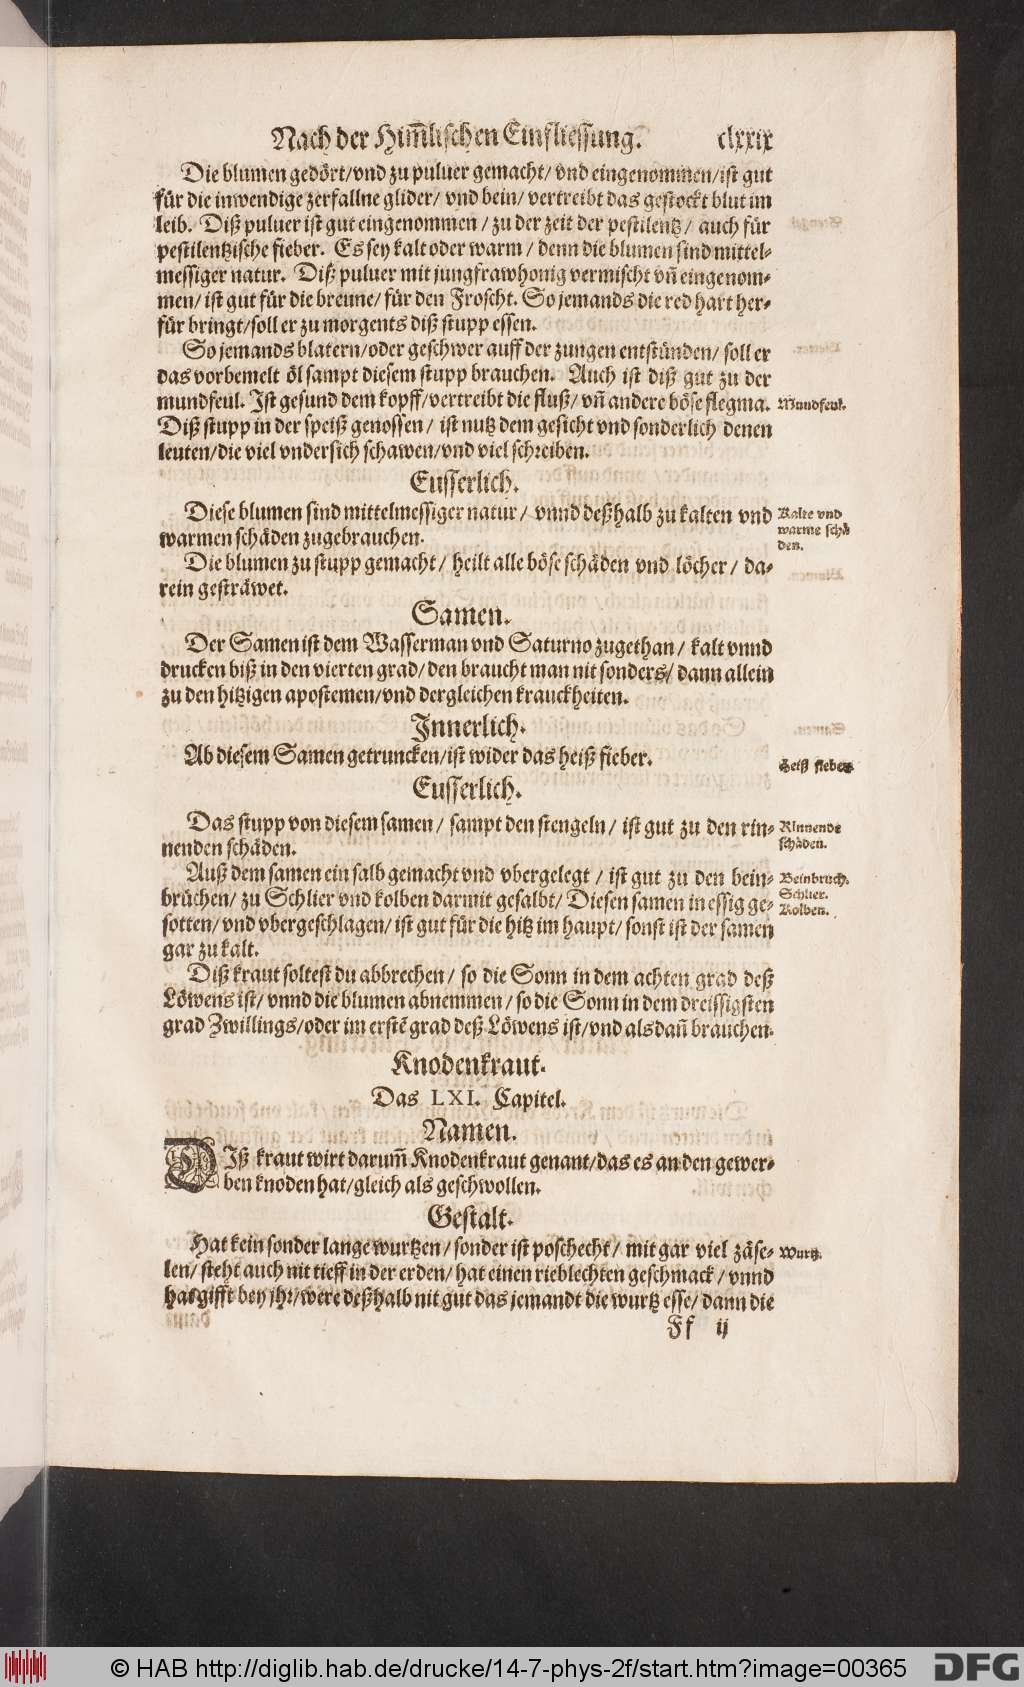 Nach der Himm̃lischen Einfliessung. clxxix
Die blumen gedört/vnd zu puluer gemacht/ vnd eingenommen/ist gut
für die inwendige zerfallne glider/ vnd bein/ vertreibt das gestockt blut im
leib. Diß puluer ist gut eingenommen / zu der zeit der pestilentz / auch für
pestilentzische fieber. Es sey kalt oder warm / denn die blumen sind mittel-
messiger natur. Diß puluer mit jungfrawhonig vermischt vñ eingenom-
men/ ist gut für die breune/ für den Froscht. So jemands die red hart her-
für bringt/soll er zu morgents diß stupp essen.
So jemands blatern/oder geschwer auff der zungen entstünden/ soll er
das vorbemelt öl sampt diesem stupp brauchen. Auch ist diß gut zu der
mundfeul. Ist gesund dem kopff/vertreibt die fluß/ vñ andere böse flegma. Mundfeul.
Diß stupp in der speiß genossen / ist nutz dem gesicht vnd sonderlich denen
leuten/die viel vndersich schawen/vnd viel schreiben.
Eusserlich.
Diese blumen sind mittelmessiger natur / vnnd deßhalb zu kalten vnd
warmen schäden zugebrauchen.
Kalte vnd
warme schä
den.
Die blumen zu stupp gemacht / heilt alle böse schäden vnd löcher / da-
rein gesträwet.
Samen.
Der Samen ist dem Wasserman vnd Saturno zugethan / kalt vnnd
drucken biß in den vierten grad/ den braucht man nit sonders/ dann allein
zu den hitzigen apostemen/vnd dergleichen kranckheiten.
Innerlich.
Ab diesem Samen getruncken/ist wider das heiß fieber. Heiß fieber
Eusserlich.
Das stupp von diesem samen / sampt den stengeln / ist gut zu den rin- Rinnende
nenden schäden. schäden.
Auß dem samen ein salb gemacht vnd vbergelegt / ist gut zu den bein- Beinbruch.
brüchen/ zu Schlier vnd kolben darmit gesalbt/ Diesen samen in essig ge- Schlier.
Kolben.
sotten/ vnd vbergeschlagen/ ist gut für die hitz im haupt/ sonst ist der samen
gar zu kalt.
Diß kraut soltest du abbrechen / so die Sonn in dem achten grad deß
Löwens ist/ vnnd die blumen abnemmen / so die Sonn in dem dreissigsten
grad Zwillings/oder im erstē grad deß Löwens ist/vnd alsdañ brauchen.
Knodenkraut.
Das LXI. Capitel.
Namen.
DIß kraut wirt darum̃ Knodenkraut genant/das es an den gewer-
ben knoden hat/gleich als geschwollen.
Gestalt.
Hat kein sonder lange wurtzen/ sonder ist poschecht / mit gar viel zäse- Wurtz.
len/ steht auch nit tieff in der erden/ hat einen rieblechten geschmack / vnnd
hat gifft bey jhr/were deßhalb nit gut das jemandt die wurtz esse/ dann die
Ff ij
© HAB http://diglib.hab.de/drucke/14-7-phys-2f/start.htm?image=00365
DFG